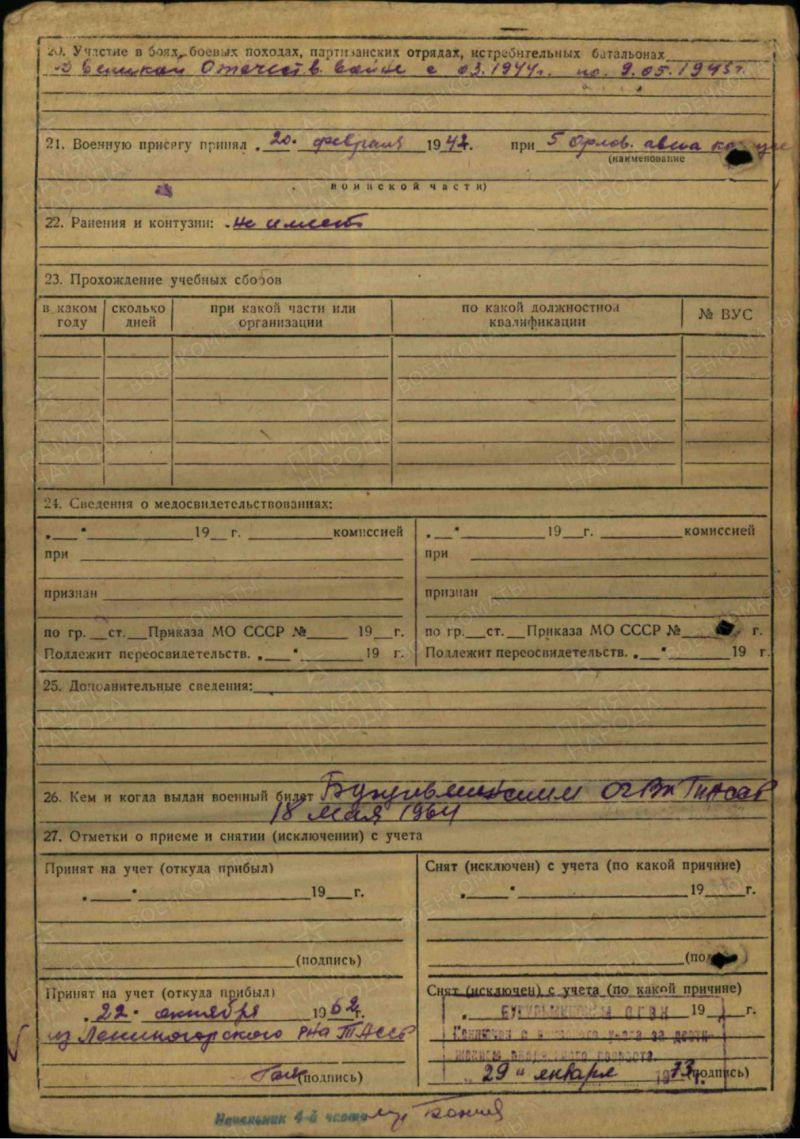 20. Участие в боях, боевых походах, партизанских отрядах, истребительных батальонах
в Великой Отечеств. войне с 03.1944г. по 9.05.1945г.
21. Военную присягу принял „20" февраля 1942г. при 5 Орлов. авиа
(наименование
воинской части)
22. Ранения и контузии: не имеет
23. Прохождение учебных сборов
в каком году | сколько дней | при какой части или организации | по какой должностной квалификации | № ВУС
24. Сведения о медосвидетельствованиях:
„ " 19 г. комиссией „ " 19 г. комиссией
при при
признан признан
по гр. ст. Приказа МО СССР № 19 г. по гр. ст. Приказа МО СССР № г.
Подлежит переосвидетельств. „ " 19 г. Подлежит переосвидетельств. „ " 19 г.
25. Дополнительные сведения:
26. Кем и когда выдан военный билет Бугульминским ОГВК
18 мая 1964
27. Отметки о приеме и снятии (исключении) с учета
Принят на учет (откуда прибыл) Снят (исключен) с учета (по какой причине)
„ " 19 г. „ " 19 г.
(подпись) (по )
Принят на учет (откуда прибыл) Снят (исключен) с учета (по какой причине)
„22" октября 1962г. БУГУЛЬМИНСКИМ ОГВК 19 г.
из Лениногорского РВК ТАССР
„29" января 1973г. (подпись)
(подпись)
Начальник 4-й части
ПАМЯТЬ НАРОДА
ВОЕНКОМАТЫ